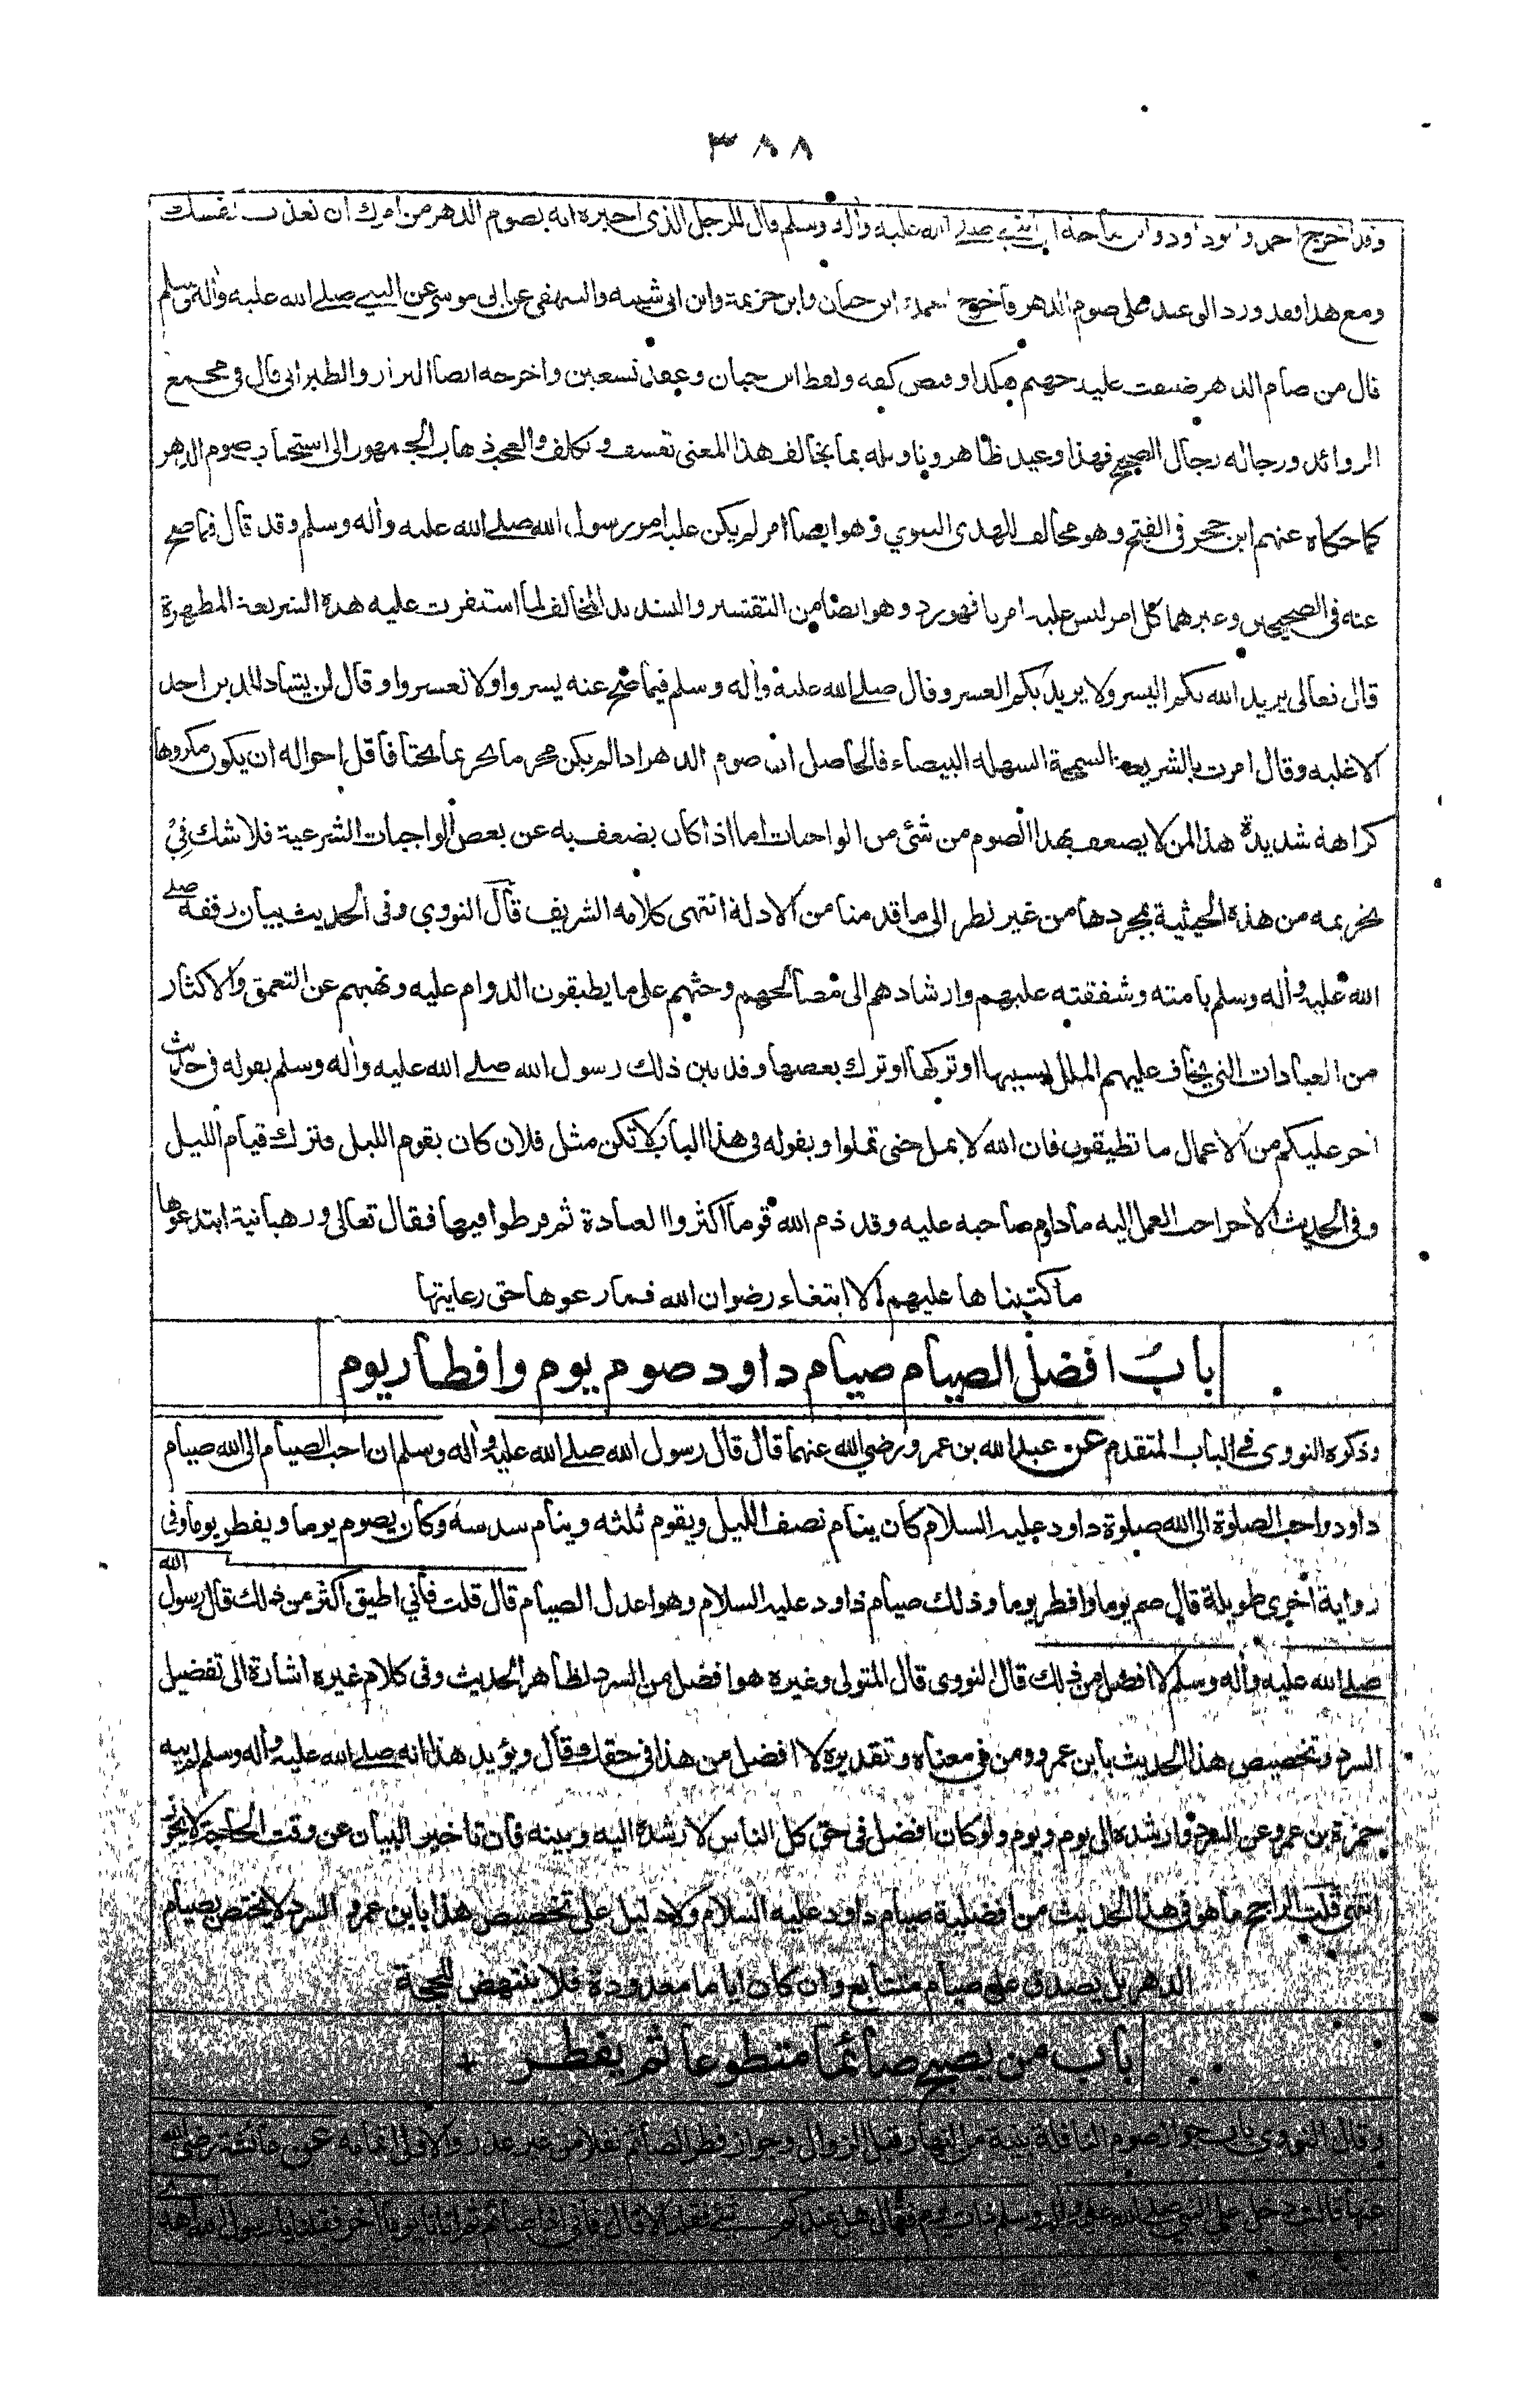 ٣٨٨
وقد اخرج احمد وابوداود وابن ماجة ان النبي صلى الله عليه وأله وسلم قال للرجل الذى اخبره انه يصوم الدهر من امرك ان تعذب نفسك
ومع هذا فقد ورد الوعيد على صوم الدهر فأخرج احمد وابن حبان وابن خزيمة وابن ابى شيبه والبيهقى عن ابى موسى عن النبي صلے الله عليه وأله وسلم
قال من صام الدهر ضيقت عليه جهنم هكذا وقبض كفه ولفظ ابن حبان وعقد تسعين واخرجه ايضا البزار والطبرانى قال فى مجمع
الزوائد ورجاله رجال الصحيح فهذا وعيد ظاهر وتاويله بما يخالف هذا المعنى تعسف وتكلف والعجب ذهاب الجمهور الى استحباب صوم الدهر
كما حكاه عنهم ابن حجر فى الفتح وهو مخالف للهدى النبوي وهو ايضا امر لم يكن عليه امر رسول الله صلے الله عليه وأله وسلم وقد قال فيما صح
عنه فى الصحيحين وغيرهما كل امر ليس عليه امرنا فهو رد وهو ايضا من التعسير والتشديد المخالف لما استقرت عليه هذه الشريعة المطهرة
قال تعالى يريد الله بكم اليسر ولا يريد بكم العسر وقال صلے الله عليه وأله وسلم فيما صح عنه يسروا ولا تعسروا وقال لن يشاد الدين احد
الا غلبه وقال امرت بالشريعة السمحة السهلة البيضاء فالحاصل ان صوم الدهر اذا لم يكن محرما تحريما بحتا فأقل احواله ان يكون مكروها
كراهة شديدة هذا لمن لا يضعف بهذا الصوم من شئ من الواجبات اما اذا كان يضعف به عن بعض الواجبات الشرعية فلا شك فى
تحريمه من هذه الحيثية بمجردها من غير نظر الى ما قدمنا من الادلة انتهى كلامه الشريف قال النووي وفى الحديث بيان رفقه صلے
الله عليه وأله وسلم بامته وشفقته عليهم وارشادهم الى مصالحهم وحثهم على ما يطيقون الدوام عليه ونهيهم عن التعمق والاكثار
من العبادات التى يخاف عليهم الملل بسببها او تركها او ترك بعضها وقد بين ذلك رسول الله صلے الله عليه وأله وسلم بقوله فى حديث
أخر عليكم من الاعمال ما تطيقون فان الله لا يمل حتى تملوا وبقوله فى هذا الباب لا تكن مثل فلان كان يقوم الليل فترك قيام الليل
وفى الحديث الأخر احب العمل اليه ما داوم صاحبه عليه وقد ذم الله قوما اكثروا العبادة ثم فرطوا فيها فقال تعالى ورهبانية ابتدعوها
ما كتبناها عليهم الا ابتغاء رضوان الله فما رعوها حق رعايتها
باب افضل الصيام صيام داود صوم يوم وافطار يوم
وذكره النووى فى الباب المتقدم عن عبد الله بن عمرو رضي الله عنهما قال قال رسول الله صلے الله عليه وأله وسلم ان احب الصيام الى الله صيام
داود واحب الصلوة الى الله صلوة داود عليه السلام كان ينام نصف الليل ويقوم ثلثه وينام سدسه وكان يصوم يوما ويفطر يوما وفى
رواية أخرى طويلة قال صم يوما وافطر يوما وذلك صيام داود عليه السلام وهو اعدل الصيام قال قلت فأني اطيق اكثر من ذلك قال رسول الله
صلے الله عليه وأله وسلم لا افضل من ذلك قال النووى قال المتولى وغيره هو افضل من السرد لظاهر الحديث وفى كلام غيره اشارة الى تفضيل
السرد وتخصيص هذا الحديث بابن عمرو ومن فى معناه وتقديره لا افضل من هذا فى حقك قال ويؤيد هذا انه صلے الله عليه وأله وسلم لم ينه
حمزة بن عمرو عن السرد وارشده الى يوم ويوم ولو كان افضل فى حق كل الناس لارشده اليه وبينه فان تاخير البيان عن وقت الحاجة لا يجوز
انتهى قلت الراجح ما هو فى هذا الحديث من افضلية صيام داود عليه السلام ولا دليل على تخصيص هذا بابن عمرو والسرد لا يختص بصيام
الدهر بل يصدق على صيام متتابع وان كان اياما معدودة فلا ينتهض للحجة
باب من يصبح صائما متطوعا ثم يفطر
وقال النووي باب جواز صوم النافلة بنية من النهار قبل الزوال وجواز فطر الصائم نفلا من غير عذر والاولى اتمامه عن عائشة رضي الله
عنها قالت دخل على النبي صلى الله عليه وأله وسلم ذات يوم فقال هل عندكم شئ فقلنا لا قال فأني اذا صائم ثم اتانا يوما أخر فقلنا يا رسول الله اهد